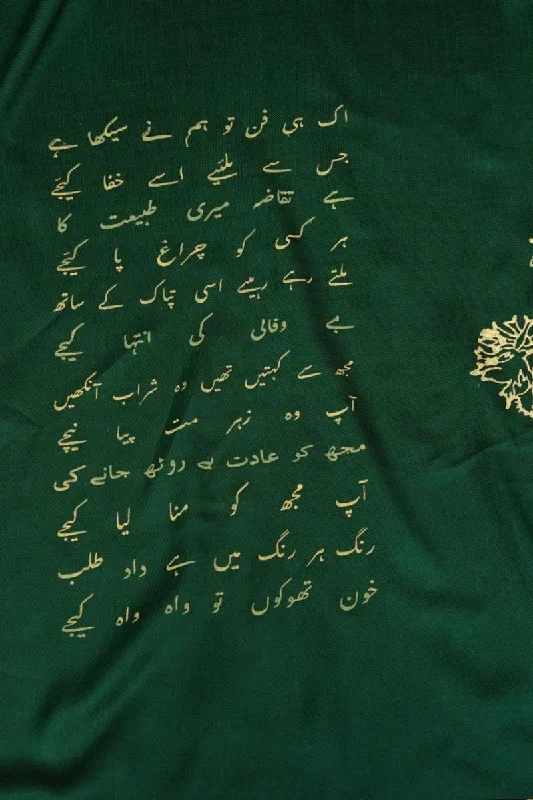 اک ہی فن تو ہم نے سیکھا ہے
جس سے ملئیے اسے خفا کیجے
ہے تقاضہ میری طبیعت کا
ہر کسی کو چراغ پا کیجے
ملتے رہے رہیے اسی تپاک کے ساتھ
بے وفائی کی انتہا کیجے
مجھ سے کہتیں تھیں وہ شراب آنکھیں
آپ وہ زہر مت پیا کیجے
مجھ کو عادت ہے روٹھ جانے کی
آپ مجھ کو منا لیا کیجے
رنگ ہر رنگ میں ہے داد طلب
خون تھوکوں تو واہ واہ کیجے